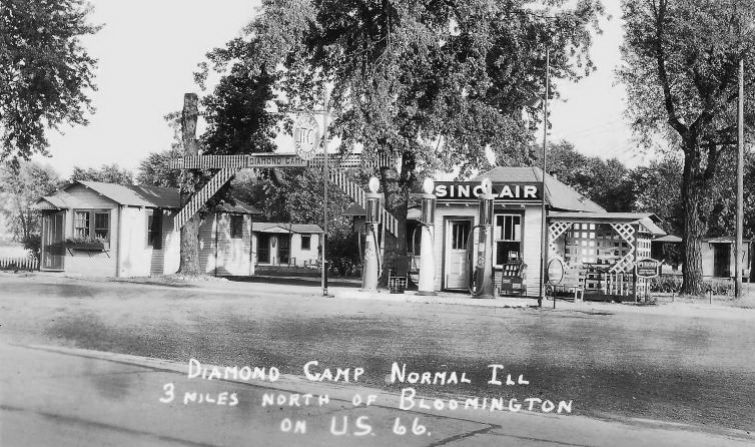 DIAMOND CAMP
SINCLAIR
DIAMOND CAMP NORMAL ILL
3 MILES NORTH OF BLOOMINGTON
ON U.S. 66.